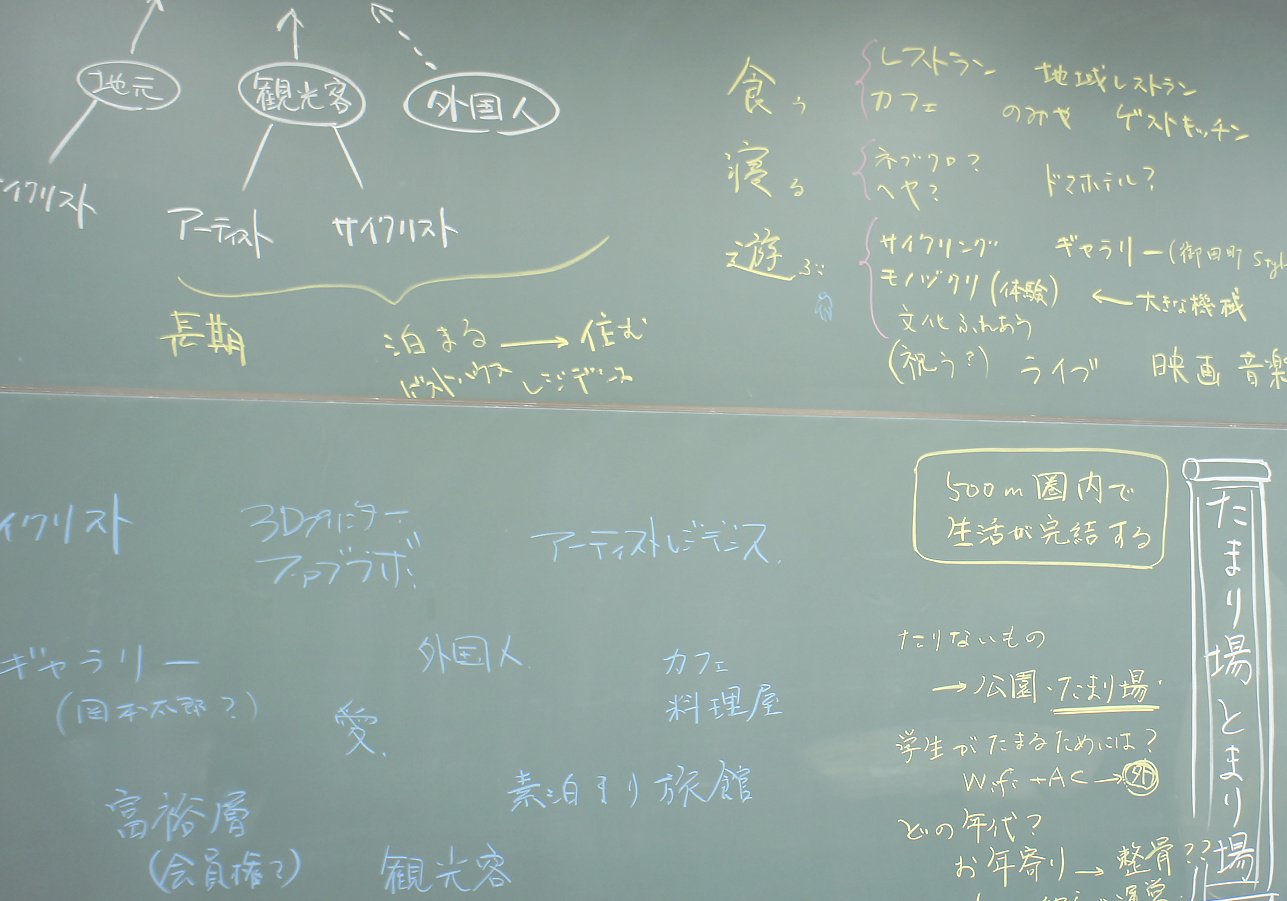 地元 観光客 外国人
イクリスト アーティスト サイクリスト
長期 泊まる → 住む
ゲストハウス レジデンス
食う
レストラン 地域レストラン
カフェ のみや ゲストキッチン
寝る
ネブクロ? ドマホテル?
ヘヤ?
遊ぶ
サイクリング ギャラリー(御田町 Style
モノヅクリ(体験) ← 大きな機械
文化ふれあう
(祝う?) ライブ 映画 音楽
イクリスト
3Dプリンター
ファブラボ!
アーティストレジデンス.
ギャラリー
(岡本太郎?)
外国人.
カフェ
料理屋
愛.
素泊まり旅館
富裕層
(会員権?)
観光客
500m圏内で
生活が完結する
たりないもの
→ 公園・たまり場・
学生がたまるためには?
Wifi + AC → 外
どの年代?
お年寄り → 整骨??
たまり場とまり場